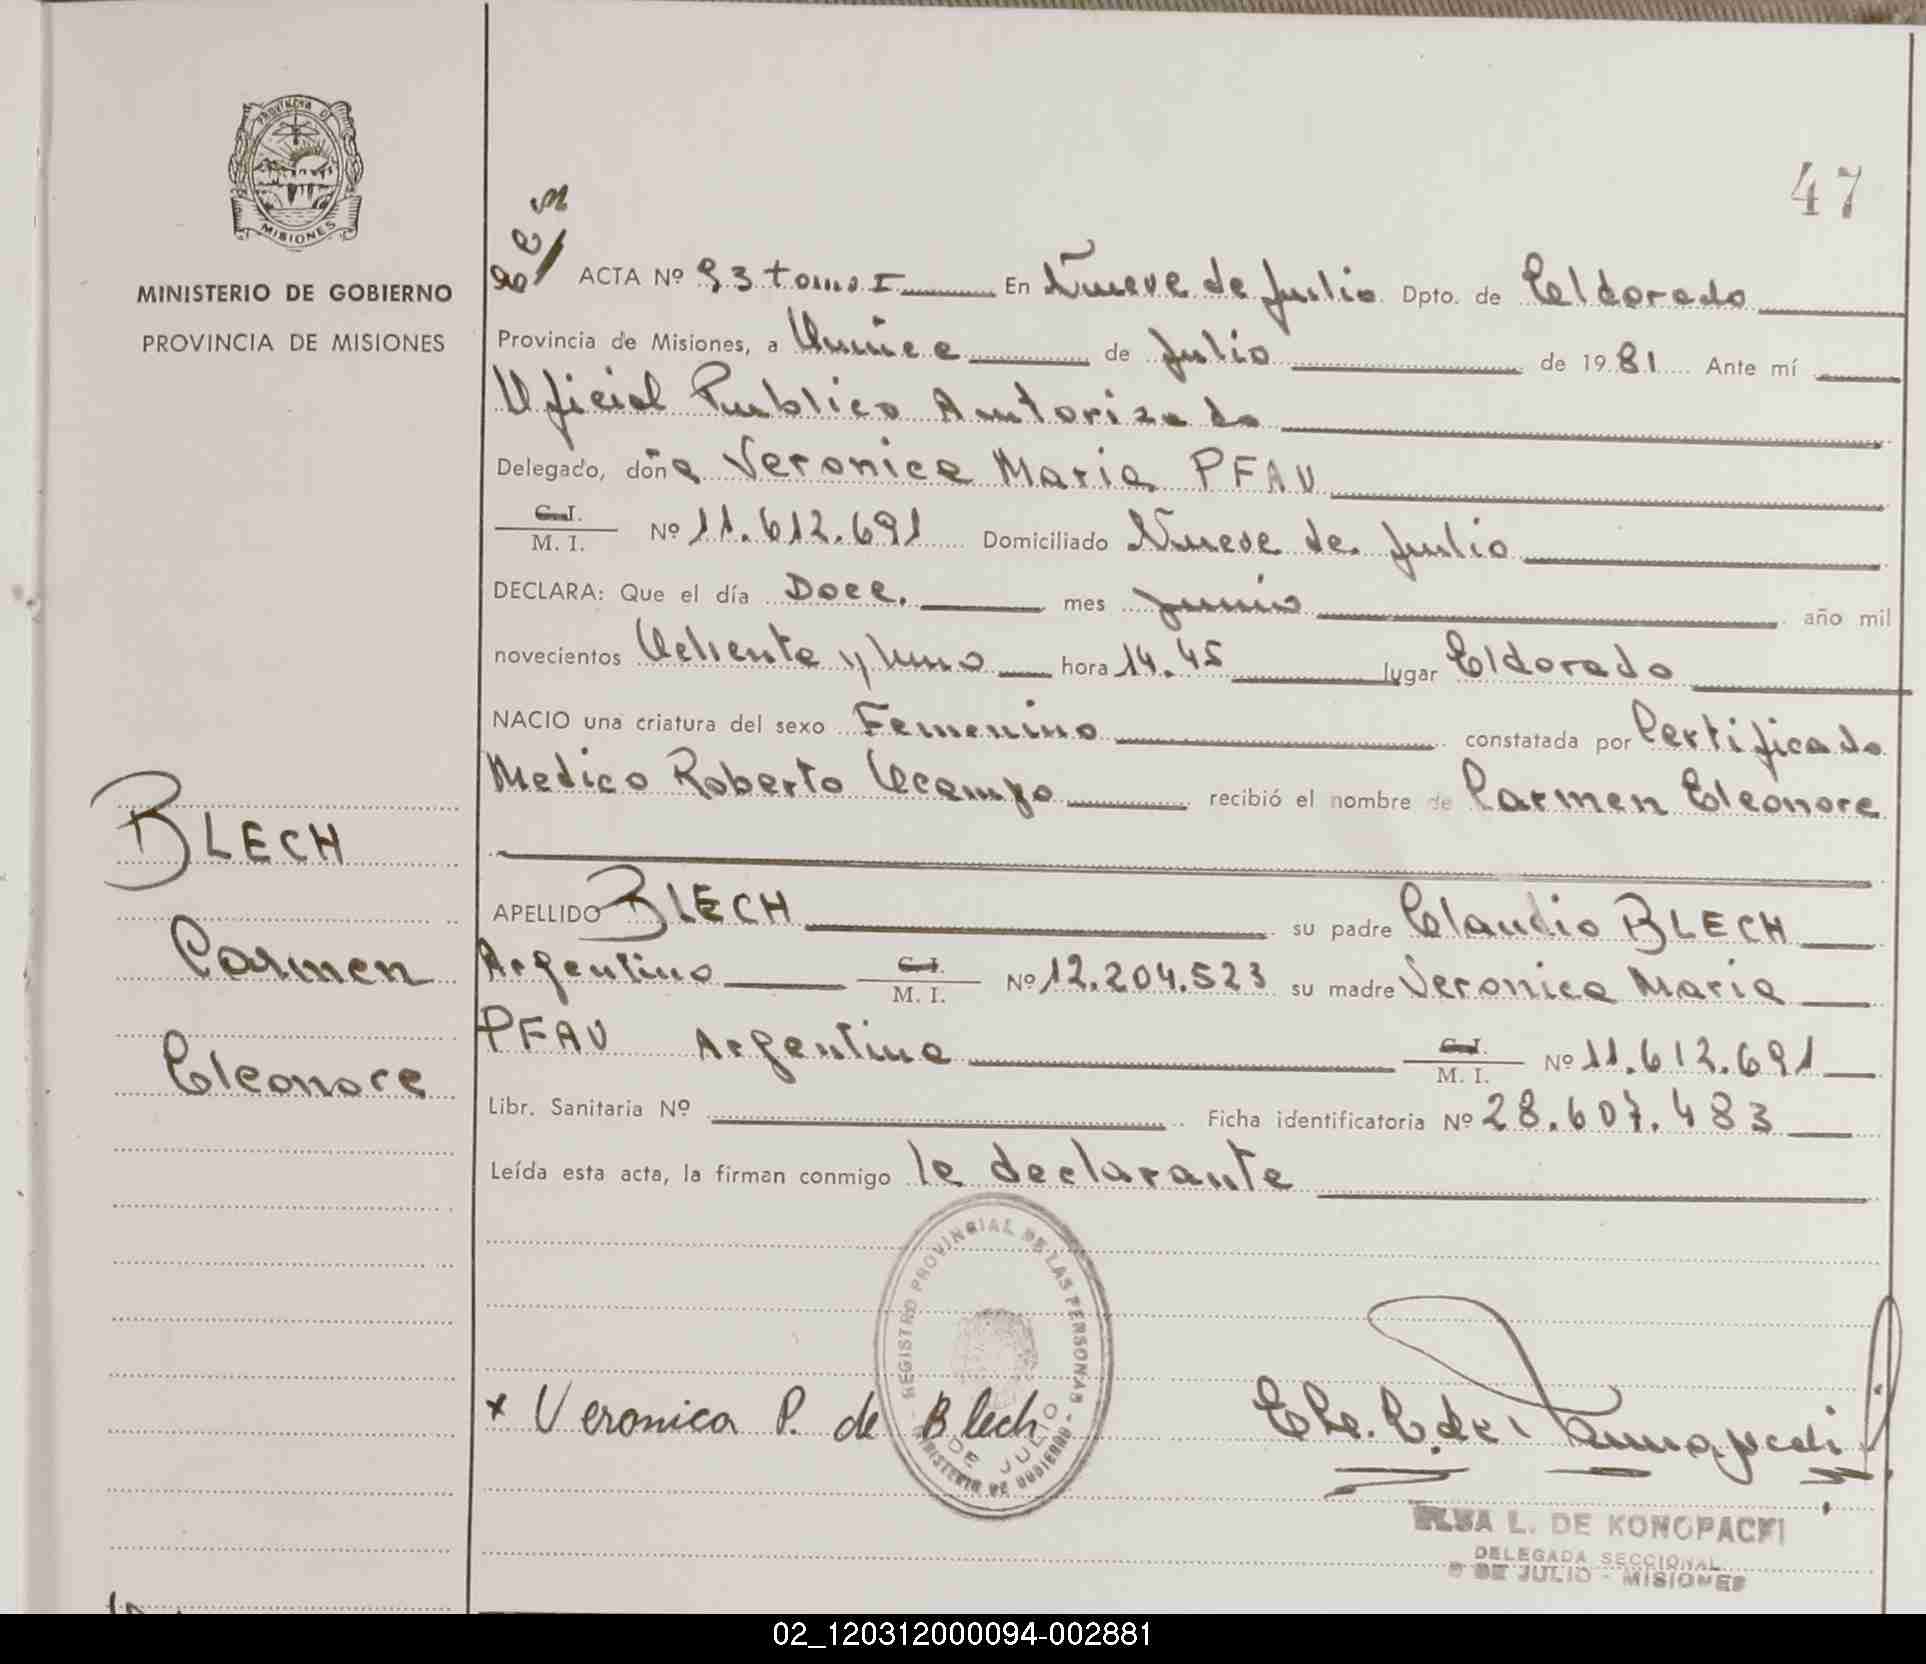 PROVINCIA DE
MISIONES
MINISTERIO DE GOBIERNO
PROVINCIA DE MISIONES
BLECH
Carmen
Eleonore
47
ACTA Nº 93 tomo I En Nueve de Julio Dpto. de Eldorado
Provincia de Misiones, a Quince de Julio de 1981 Ante mí
Oficial Publico Autorizado
Delegado, doña Veronica Maria PFAU
C.I.
M. I. Nº 11.612.691 Domiciliado Nueve de Julio
DECLARA: Que el día Doce. mes Junio año mil
novecientos Ochenta y Uno hora 14.45 lugar Eldorado
NACIO una criatura del sexo Femenino constatada por Certificado
Medico Roberto Ocampo recibió el nombre de Carmen Eleonore
APELLIDO BLECH su padre Claudio BLECH
Argentino C.I. M. I. Nº 12.204.523 su madre Veronica Maria
PFAU Argentina C.I. M. I. Nº 11.612.691
Libr. Sanitaria Nº Ficha identificatoria Nº 28.607.483
Leída esta acta, la firman conmigo la declarante
REGISTRO PROVINCIAL DE LAS PERSONAS
DE JULIO
MINISTERIO DE GOBIERNO
x Veronica P. de Blech
ELSA L. DE KONOPACKI
DELEGADA SECCIONAL
9 DE JULIO - MISIONES
02_120312000094-002881